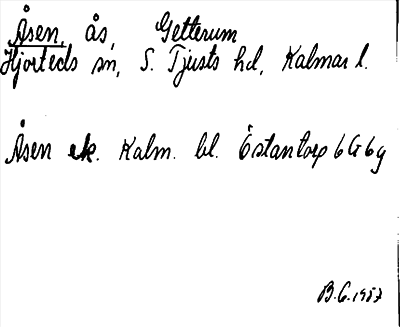 Åsen, ås, Getterum
Hjorteds sn, S. Tjusts hd, Kalmar l.
Åsen ek. Kalm. bl. Östantorp 6G6g
B.G. 1957